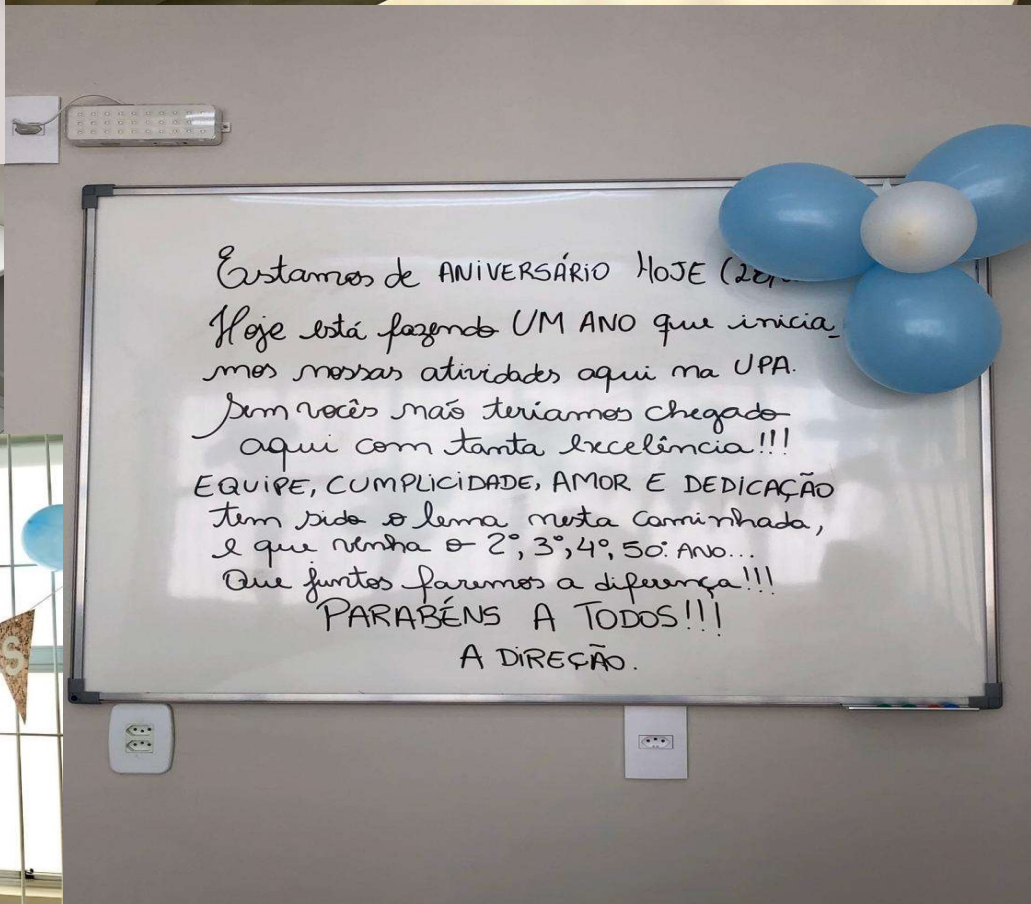 Estamos de ANIVERSÁRIO HOJE
Hoje está fazendo UM ANO que inicia_
mos nossas atividades aqui na UPA.
Sem vocês não teríamos chegado
aqui com tanta excelência!!!
EQUIPE, CUMPLICIDADE, AMOR E DEDICAÇÃO
tem sido o lema nesta caminhada,
e que venha o 2º, 3º, 4º, 50º ANO...
Que juntos faremos a diferença!!!
PARABÉNS A TODOS!!!
A DIREÇÃO.
S